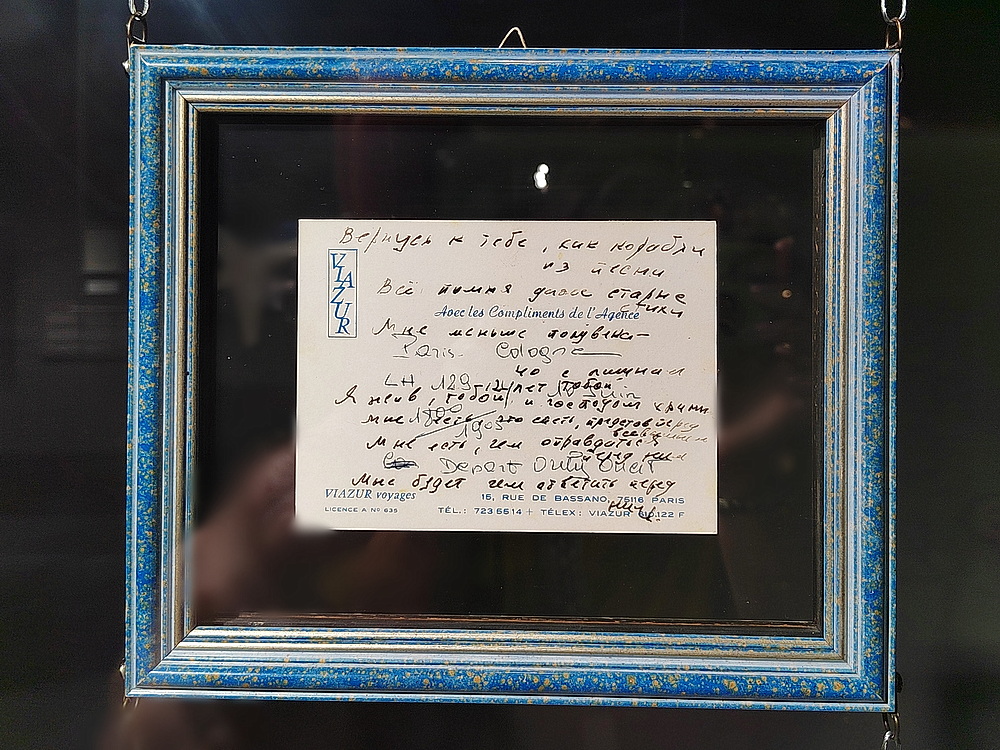 Вернусь к тебе, как корабли
из песни
VIAZUR
Всё помня даже старые
стихи
Avec les Compliments de l'Agence
Мне меньше полувека —
Paris - Cologne
LH 129
12 лет тобой
Я жив, тобой и господом храним
Мне есть, представ перед
Мне есть, чем оправдаться
перед ним
Depart Orly Ouest
Мне будет чем ответить перед
ним.
VIAZUR voyages
15, RUE DE BASSANO, 75116 PARIS
LICENCE A No 635
TÉL.: 723 55 14 + TÉLEX: VIAZUR 610.122 F